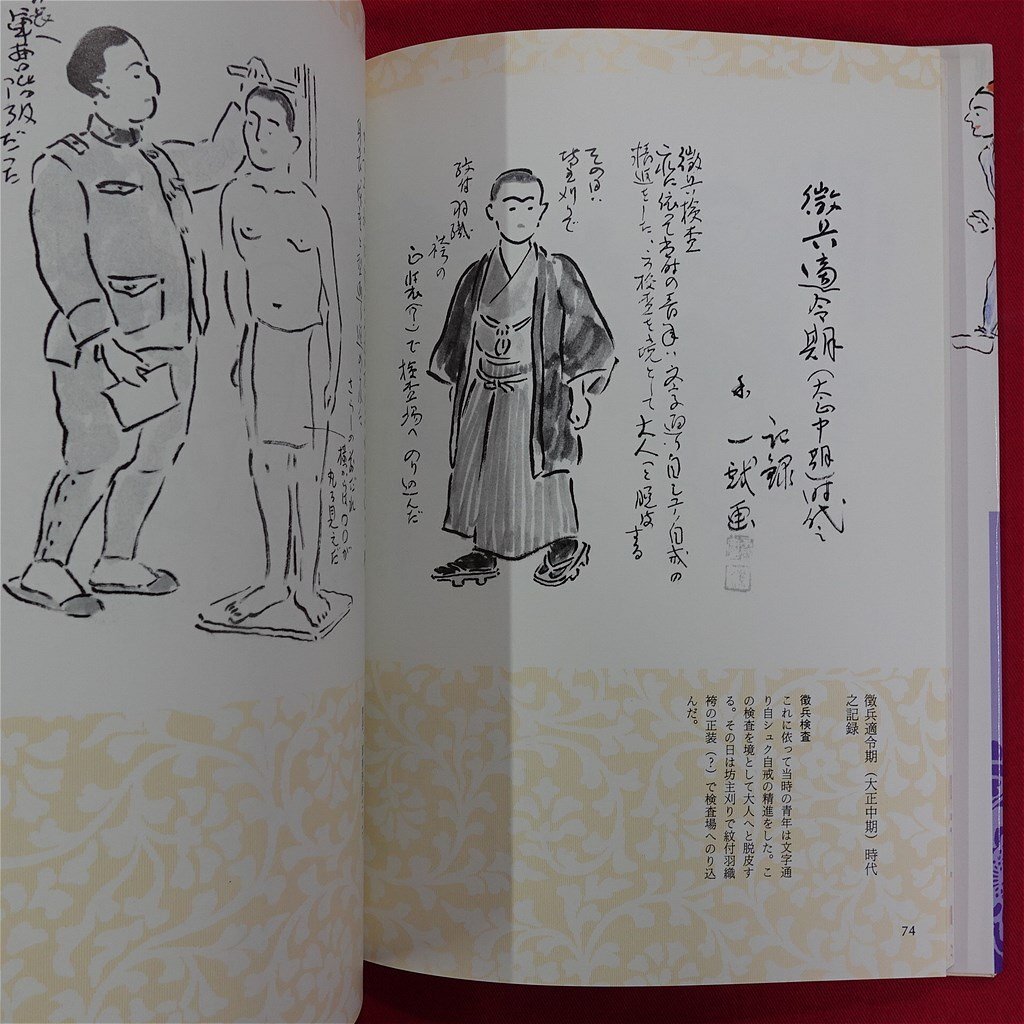 徴兵適令期(大正中期)時代之
記録
一誠画
徴兵検査
これに依って当時の青年は文字通り自シュク自戒の
精進をした。この検査を境として大人へと脱皮する
その日は
坊主刈りで
紋付羽織
袴の
正装(?)で検査場へのり込んだ
徴兵適令期(大正中期)時代
之記録
徴兵検査
これに依って当時の青年は文字通
り自シュク自戒の精進をした。こ
の検査を境として大人へと脱皮す
る。その日は坊主刈りで紋付羽織
袴の正装(?)で検査場へのり込
んだ。
74
丸る見えだ